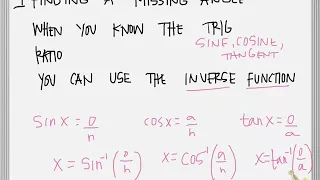 I FINDING A MISSING ANGLE
WHEN YOU KNOW THE TRIG
RATIO SINE, COSINE,
TANGENT
YOU CAN USE THE INVERSE FUNCTION
Sin x = o/h cos x = a/h tan x = o/a
x = Sin⁻¹(o/h) x = cos⁻¹(a/h) x = tan⁻¹(o/a)